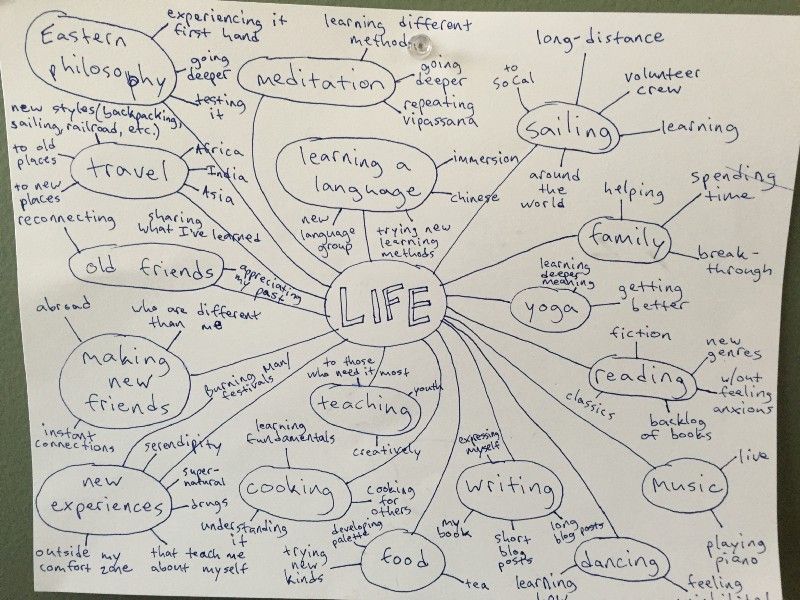 Eastern
philosophy
experiencing it
first hand
going
deeper
testing
it
meditation
learning different
methods
going
deeper
repeating
vipassana
sailing
to
SoCal
long-distance
volunteer
crew
learning
around
the
world
travel
new styles (backpacking,
sailing, railroad, etc.)
to old
places
to new
places
Africa
India
Asia
learning a
language
immersion
chinese
new
language
group
trying new
learning
methods
family
helping
spending
time
break-
through
old friends
reconnecting
sharing
what I've learned
appreciating
my past
LIFE
yoga
learning
deeper
meaning
getting
better
making
new
friends
abroad
who are different
than me
instant
connections
reading
fiction
new
genres
w/out
feeling
anxious
backlog
of books
classics
teaching
to those
who need it most
youth
creatively
new
experiences
Burning Man/
festivals
serendipity
super-
natural
drugs
that teach me
about myself
outside my
comfort zone
cooking
learning
fundamentals
cooking
for
others
understanding
it
food
developing
palette
trying
new
kinds
tea
writing
expressing
myself
my
book
short
blog
posts
long
blog posts
music
live
playing
piano
dancing
learning
feeling